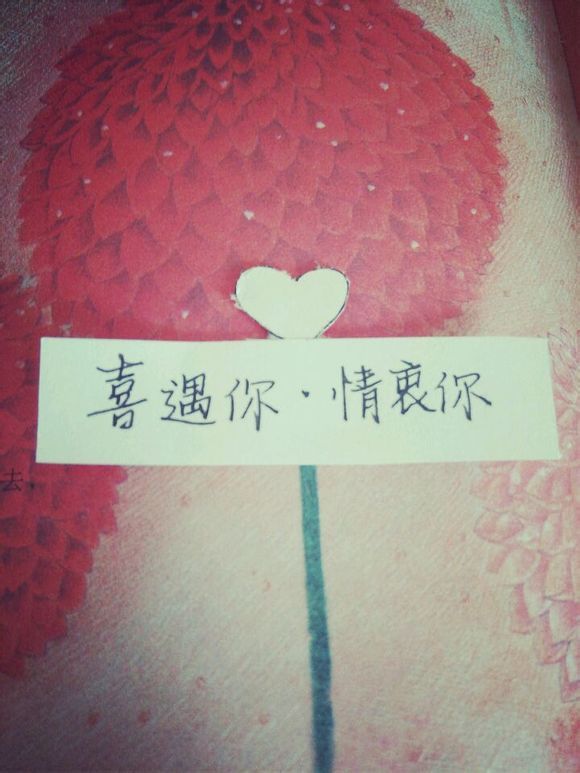 喜遇你·情衷你
去，